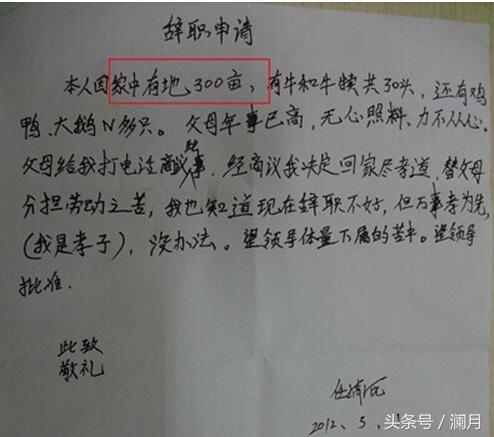 辞职申请
本人因家中有地300亩，有牛和牛犊共30头，还有鸡
鸭、大鹅N多只。父母年事已高，无心照料、力不从心。
父母给我打电话商议此事，经商议我决定回家尽孝道，替父母
分担劳动之苦，我也知道现在辞职不好，但万事孝为先，
(我是孝子)，没办法。望领导体量下属的苦衷。望领导
批准.
此致
敬礼
2012、3、
头条号／澜月